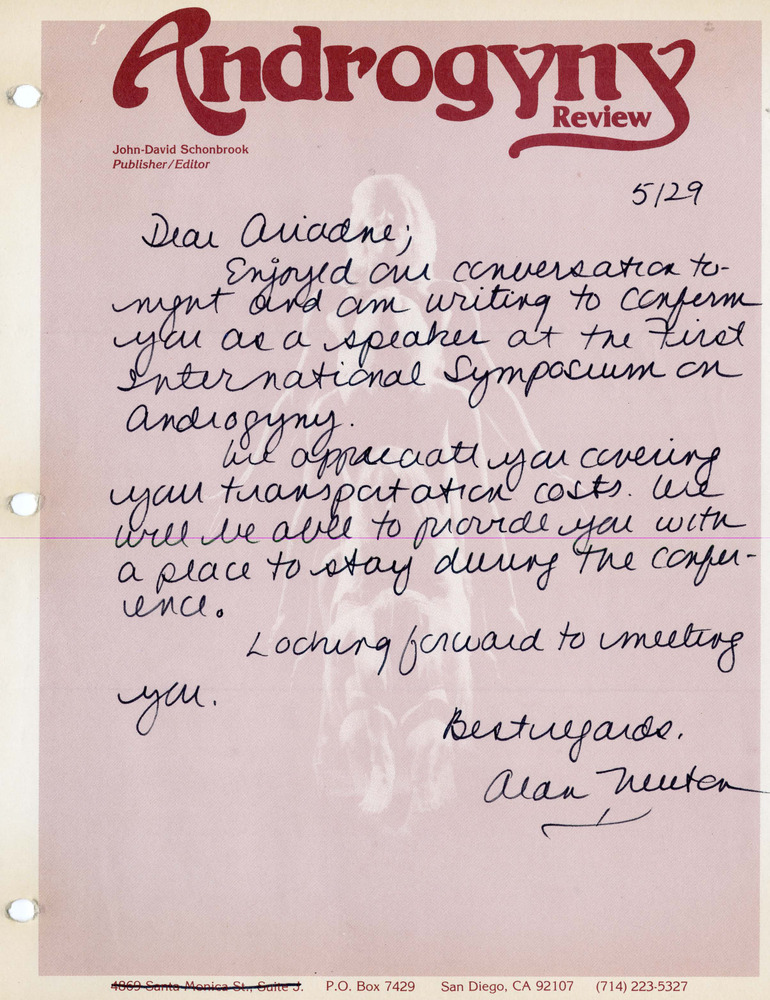 Androgyny
Review
John-David Schonbrook
Publisher/Editor
5/29
Dear Ariadne;
Enjoyed our conversation to-
night and am writing to confirm
you as a speaker at the First
International Symposium on
Androgyny.
We appreciate you covering
your transportation costs. We
will be able to provide you with
a place to stay during the confer-
ence.
Looking forward to meeting
you.
Best regards.
Alan Newton
4869 Santa Monica St., Suite J. P.O. Box 7429 San Diego, CA 92107 (714) 223-5327